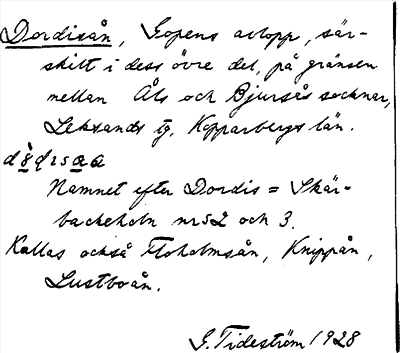 Dordisån, Gopens avlopp, sär-
skilt i dess övre del, på gränsen
mellan Åls och Bjursås socknar,
Leksands tg, Kopparbergs län.
Namnet efter Dordis = Skär-
backeholn nr 52 och 3.
Kallas också Floholmsån, Knippån,
Lustboån.
G. Tideström 1928